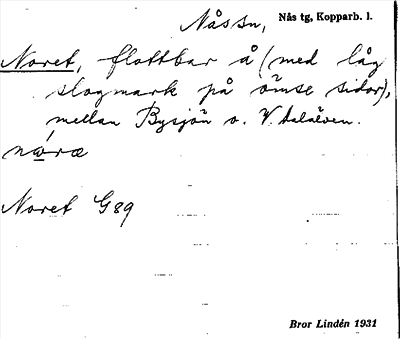 Nås sn,
Nås tg, Kopparb. l.
Noret, flottbar å (med låg
slogmark på ömse sidor),
mellan Bysjön o. V. Dalälven.
nωræ
Noret G89
Bror Lindén 1931